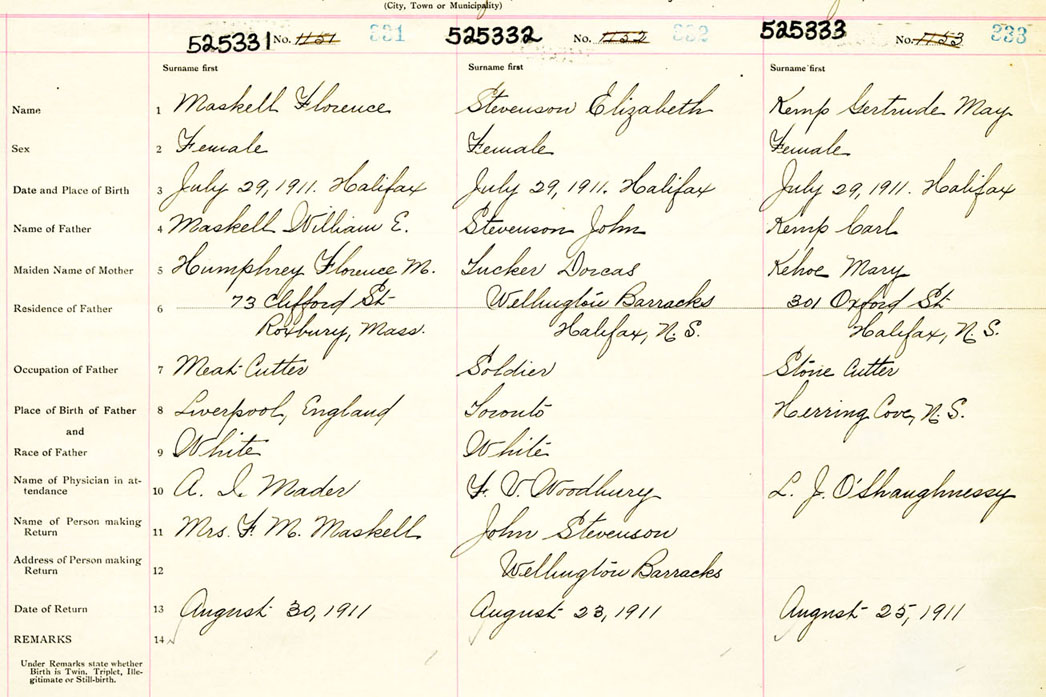 (City, Town or Municipality)
525331 No. 1151 331 525332 No. 1152 332 525333 No. 1153 333
Surname first Surname first Surname first
Name 1 Maskell Florence Stevenson Elizabeth Kemp Gertrude May
Sex 2 Female Female Female
Date and Place of Birth 3 July 29, 1911. Halifax July 29, 1911. Halifax July 29, 1911. Halifax
Name of Father 4 Maskell William E. Stevenson John Kemp Carl
Maiden Name of Mother 5 Humphrey Florence M. Tucker Dorcas Kehoe Mary
Residence of Father 6 73 Clifford St Wellington Barracks 301 Oxford St
Roxbury, Mass. Halifax, N.S. Halifax, N.S.
Occupation of Father 7 Meat Cutter Soldier Stone Cutter
Place of Birth of Father 8 Liverpool, England Toronto Herring Cove, N.S.
and
Race of Father 9 White White
Name of Physician in at-
tendance 10 A. I. Mader F. V. Woodbury L. J. O'Shaughnessy
Name of Person making
Return 11 Mrs. F. M. Maskell John Stevenson
Address of Person making
Return 12 Wellington Barracks
Date of Return 13 August 30, 1911 August 23, 1911 August 25, 1911
REMARKS 14
Under Remarks state whether
Birth is Twin, Triplet, Ille-
gitimate or Still-birth.